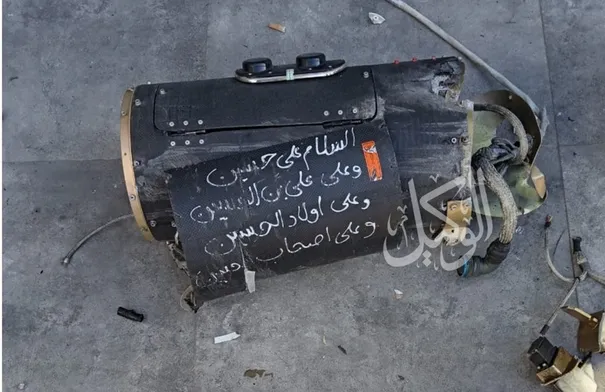 السلام على حسين
وعلى علي بن الحسين
وعلى اولاد الحسين
وعلى اصحاب حسين
الوكيل